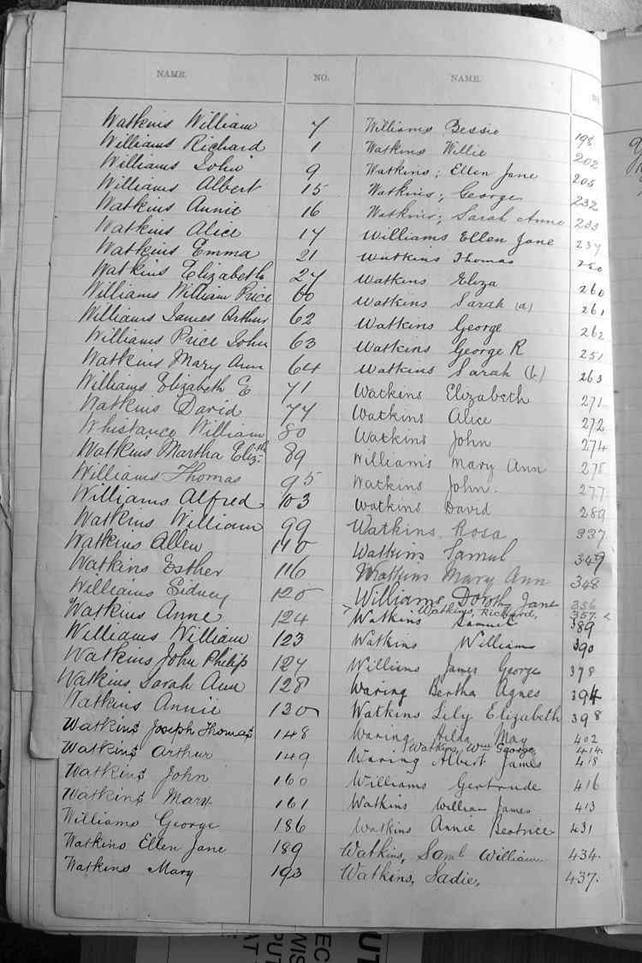 NAME. NO. NAME.
Watkins William 7
Williams Richard 1
Williams John 9
Williams Albert 15
Watkins Annie 16
Watkins Alice 17
Watkins Emma 21
Watkins Elizabeth 27
Williams William Price 60
Williams James Arthur 62
Williams Price John 63
Watkins Mary Ann 64
Williams Elizabeth E 71
Watkins David 77
Whistance William 80
Watkins Martha Elizth 89
Williams Thomas 95
Williams Alfred 103
Watkins William 99
Watkins Allen 110
Watkins Esther 116
Williams Sidney 120
Watkins Anne 124
Williams William 123
Watkins John Philip 127
Watkins Sarah Ann 128
Watkins Annie 130
Watkins Joseph Thomas 148
Watkins Arthur 149
Watkins John 160
Watkins Mary 161
Williams George 186
Watkins Ellen Jane 189
Watkins Mary 193
Williams Bessie 198
Watkins Willie 202
Watkins; Ellen Jane 205
Watkins; George 232
Watkins; Sarah Anne 233
Williams Ellen Jane 237
Watkins Thomas
Watkins Eliza 260
Watkins Sarah (a) 261
Watkins George 262
Watkins George R 251
Watkins Sarah (b) 263
Watkins Elizabeth 271
Watkins Alice 272
Watkins John 274
Williams Mary Ann 275
Watkins John. 277
Watkins David 289
Watkins Rosa 337
Watkins Samul 349
Watkins Mary Ann 348
Williams Dorothy Jane 356
Watkins, Richard, 357
Watkins Samuel 389
Watkins William 390
Williams James George 378
Waring Bertha Agnes 394
Watkins Lily Elizabeth 398
Waring Hilda May 402
Watkins, Wm George 414
Waring Albert James 418
Williams Gertrude 416
Watkins William James 413
Watkins Annie Beatrice 431
Watkins, Saml William 434.
Watkins, Sadie, 437.